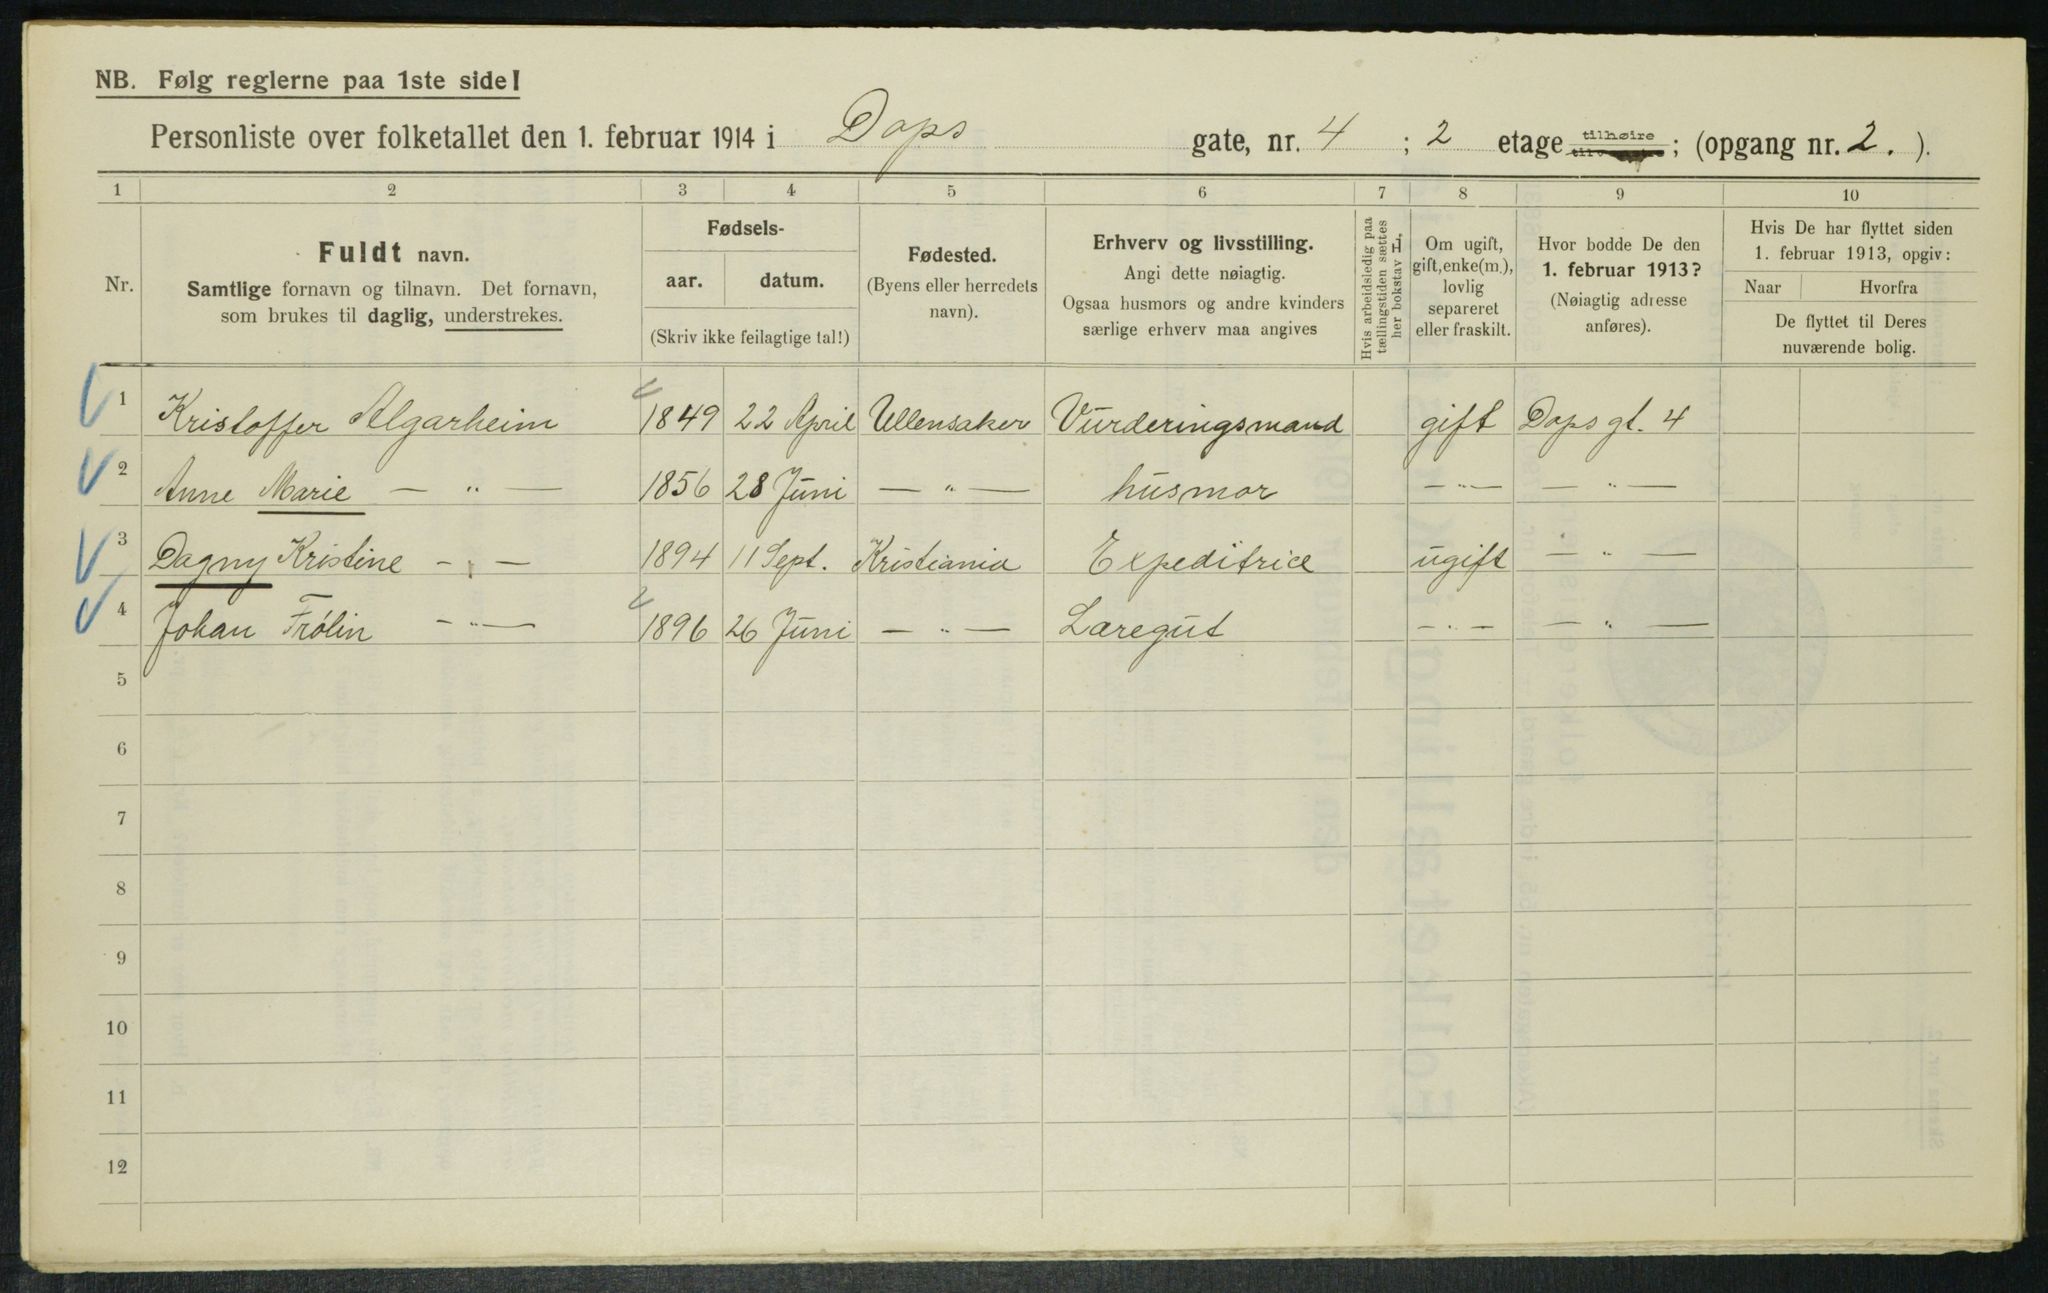 NB. Følg reglerne paa 1ste side!
Personliste over folketallet den 1. februar 1914 i Dops gate, nr. 4 ; 2 etage tilhøire ; (opgang nr. 2. ).
1 2 3 4 5 6 7 8 9 10
Nr.
Fuldt navn.
Samtlige fornavn og tilnavn. Det fornavn,
som brukes til daglig, understrekes.
Fødsels-
aar. datum.
(Skriv ikke feilagtige tal!)
Fødested.
(Byens eller herredets
navn).
Erhverv og livsstilling.
Angi dette nøiagtig.
Ogsaa husmors og andre kvinders
særlige erhverv maa angives
Hvis arbeidsledig paa
tællingstiden sættes
her bokstav L.
Om ugift,
gift, enke(m.),
lovlig
separeret
eller fraskilt.
Hvor bodde De den
1. februar 1913?
(Nøiagtig adresse
anføres).
Hvis De har flyttet siden
1. februar 1913, opgiv:
Naar Hvorfra
De flyttet til Deres
nuværende bolig.
1 Kristoffer Algarheim 1849 22 April Ullensaker Vurderingsmand gift Dops gt. 4
2 Anne Marie — " — 1856 28 Juni — " — husmor — " — — " —
3 Dagny Kristine — " — 1894 11 Sept. Kristiania Expeditrice ugift — " —
4 Johan Frölin — " — 1896 26 Juni — " — Læregut — " — — " —
5
6
7
8
9
10
11
12